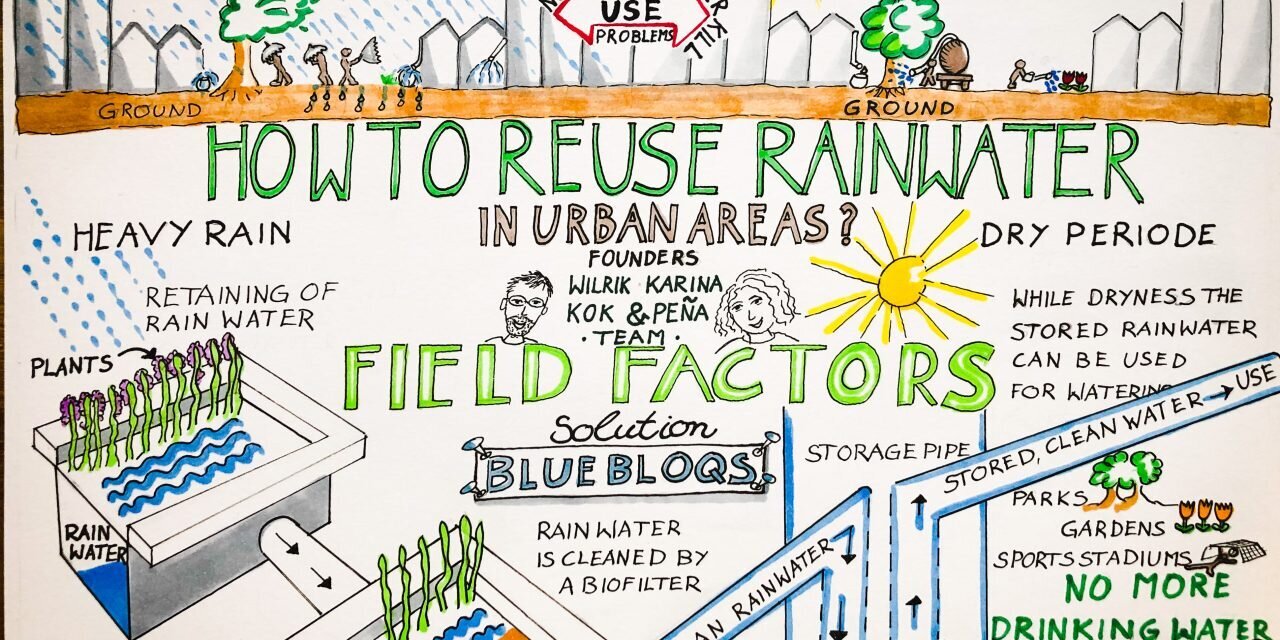 USE
PROBLEMS
KILL
GROUND
GROUND
HOW TO REUSE RAINWATER
IN URBAN AREAS?
HEAVY RAIN
RETAINING OF
RAIN WATER
PLANTS
RAIN
WATER
FOUNDERS
WILRIK KARINA
KOK & PEÑA
· TEAM ·
FIELD FACTORS
Solution
BLUEBLOQS
RAINWATER
IS CLEANED BY
A BIOFILTER
DRY PERIODE
WHILE DRYNESS THE
STORED RAINWATER
CAN BE USED
FOR WATERING
STORAGE PIPE
STORED, CLEAN WATER → USE
RAINWATER
PARKS
GARDENS
SPORTS STADIUMS
NO MORE
DRINKING WATER